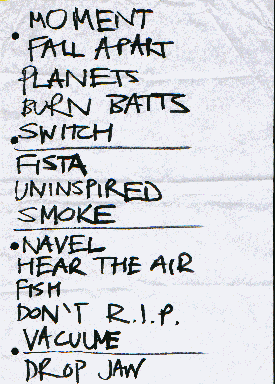 MOMENT
FALL APART
PLANETS
BURN BATTS
SWITCH
FISTA
UNINSPIRED
SMOKE
NAVEL
HEAR THE AIR
FISH
DON'T R.I.P.
VACUUME
DROP JAW